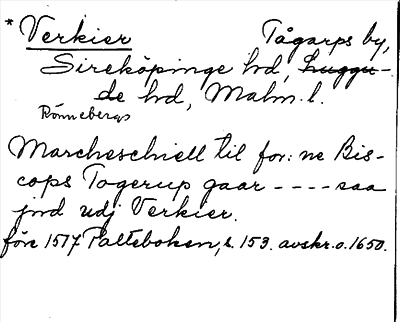 * Verkier Tågarps by,
Sireköpinge hd, Luggu-
de hd, Malm. l.
Rönnebergs
Marcheschiell til for: ne Bis-
cops Togerup gaar - - - - saa
jnd udj Verkier.
före 1517 Palteboken, s. 153. avskr. o. 1650.